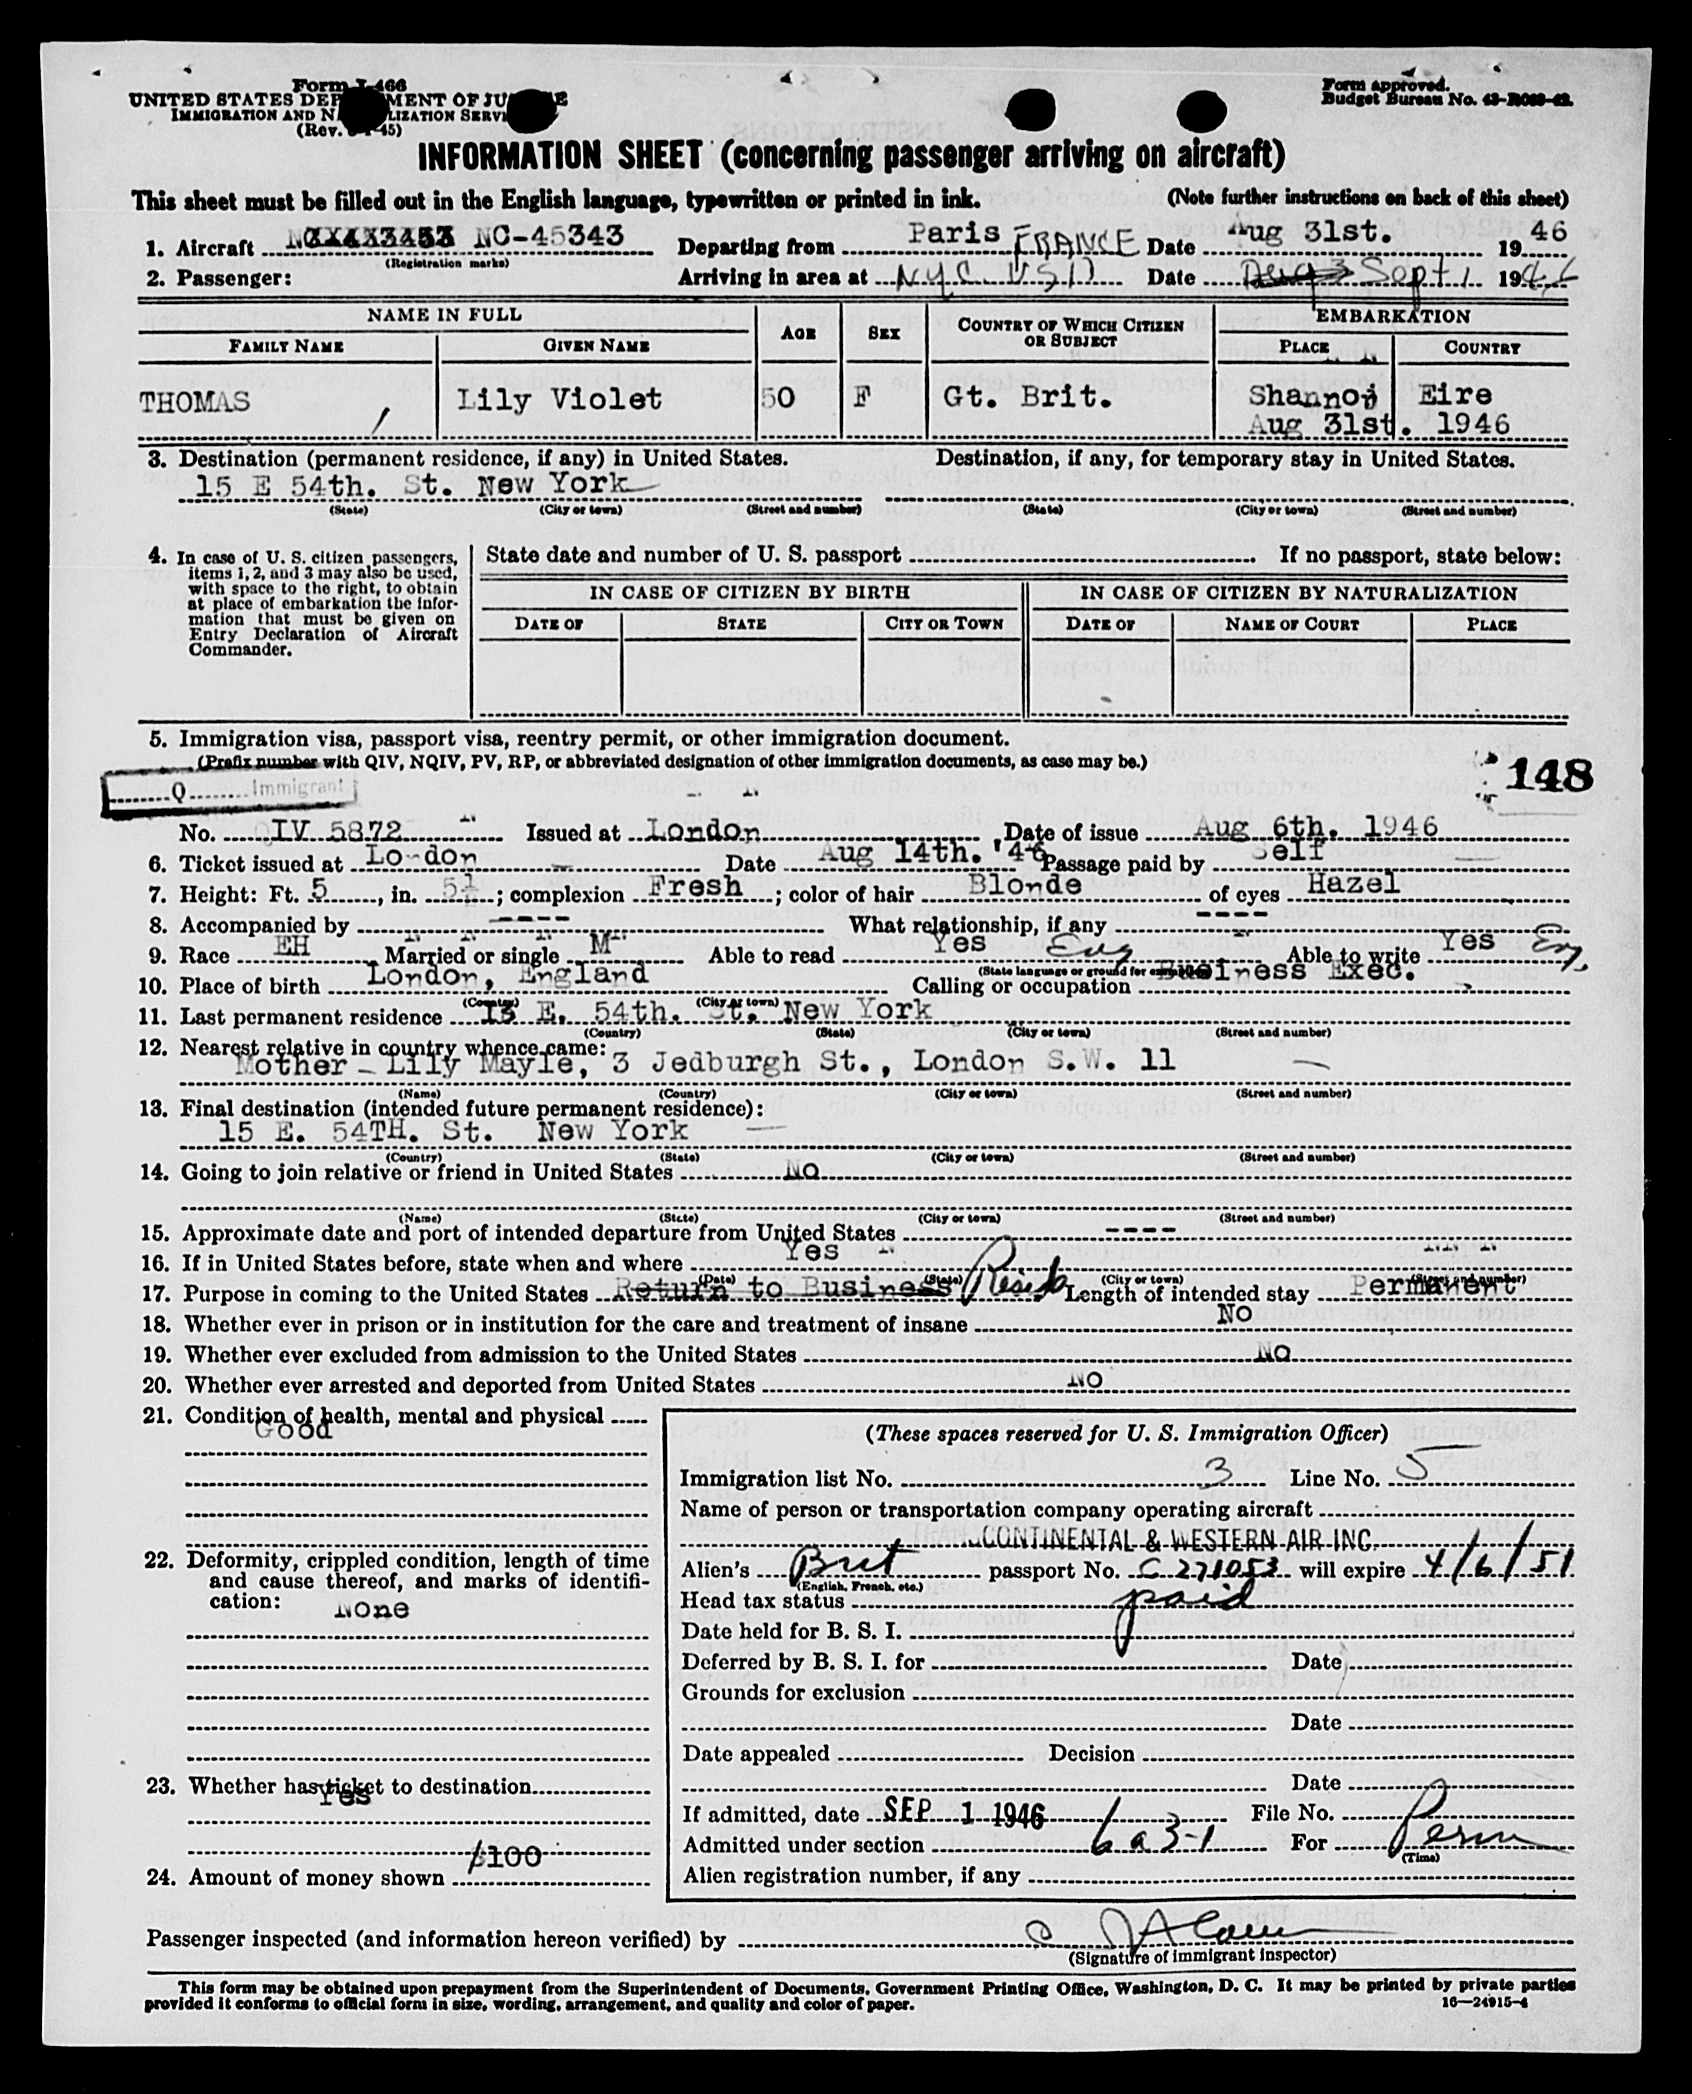 Form I-466
UNITED STATES DEPARTMENT OF JUSTICE
IMMIGRATION AND NATURALIZATION SERVICE
(Rev. 45)
Form approved.
Budget Bureau No.
INFORMATION SHEET (concerning passenger arriving on aircraft)
This sheet must be filled out in the English language, typewritten or printed in ink. (Note further instructions on back of this sheet)
1. Aircraft NC-45343 Departing from Paris FRANCE Date Aug 31st. 1946
(Registration marks)
2. Passenger: Arriving in area at N.Y.C. U.S.A Date Sept 1 1946
NAME IN FULL AGE SEX COUNTRY OF WHICH CITIZEN OR SUBJECT EMBARKATION
FAMILY NAME GIVEN NAME PLACE COUNTRY
THOMAS Lily Violet 50 F Gt. Brit. Shannon Eire
Aug 31st. 1946
3. Destination (permanent residence, if any) in United States. Destination, if any, for temporary stay in United States.
15 E 54th. St. New York
(State) (City or town) (Street and number) (State) (City or town) (Street and number)
4. In case of U. S. citizen passengers, items 1, 2, and 3 may also be used, with space to the right, to obtain at place of embarkation the information that must be given on Entry Declaration of Aircraft Commander.
State date and number of U. S. passport If no passport, state below:
IN CASE OF CITIZEN BY BIRTH IN CASE OF CITIZEN BY NATURALIZATION
DATE OF STATE CITY OR TOWN DATE OF NAME OF COURT PLACE
5. Immigration visa, passport visa, reentry permit, or other immigration document.
(Prefix number with QIV, NQIV, PV, RP, or abbreviated designation of other immigration documents, as case may be.)
148
Q Immigrant
No. QIV 5872 Issued at London Date of issue Aug 6th. 1946
6. Ticket issued at London Date Aug 14th. '46 Passage paid by Self
7. Height: Ft. 5, in. 5½; complexion Fresh; color of hair Blonde of eyes Hazel
8. Accompanied by ---- What relationship, if any ----
9. Race EH Married or single M Able to read Yes Eng Able to write Yes Eng.
(State language or ground for exemption)
10. Place of birth London, England Calling or occupation Business Exec.
(Country) (City or town)
11. Last permanent residence 15 E. 54th. St. New York
(Country) (State) (City or town) (Street and number)
12. Nearest relative in country whence came:
Mother - Lily Mayle, 3 Jedburgh St., London S.W. 11
(Name) (Country) (City or town) (Street and number)
13. Final destination (intended future permanent residence):
15 E. 54TH. St. New York
(Country) (State) (City or town) (Street and number)
14. Going to join relative or friend in United States No
(Name) (State) (City or town) (Street and number)
15. Approximate date and port of intended departure from United States ----
16. If in United States before, state when and where Yes
(Date) (State) (City or town) (Street and number)
17. Purpose in coming to the United States Return to Business Reside Length of intended stay Permanent
18. Whether ever in prison or in institution for the care and treatment of insane No
19. Whether ever excluded from admission to the United States No
20. Whether ever arrested and deported from United States No
21. Condition of health, mental and physical
Good
22. Deformity, crippled condition, length of time
and cause thereof, and marks of identifi-
cation: None
23. Whether has ticket to destination
Yes
24. Amount of money shown $100
(These spaces reserved for U. S. Immigration Officer)
Immigration list No. 3 Line No. 5
Name of person or transportation company operating aircraft
CONTINENTAL & WESTERN AIR INC.
Alien's Brit passport No. C 271053 will expire 4/6/51
(English, French, etc.)
Head tax status paid
Date held for B. S. I.
Deferred by B. S. I. for Date
Grounds for exclusion
Date
Date appealed Decision
Date
If admitted, date SEP 1 1946 File No.
Admitted under section 6a3-1 For Perm
(Time)
Alien registration number, if any
Passenger inspected (and information hereon verified) by
(Signature of immigrant inspector)
This form may be obtained upon prepayment from the Superintendent of Documents, Government Printing Office, Washington, D. C. It may be printed by private parties
provided it conforms to official form in size, wording, arrangement, and quality and color of paper. 16—24915-4